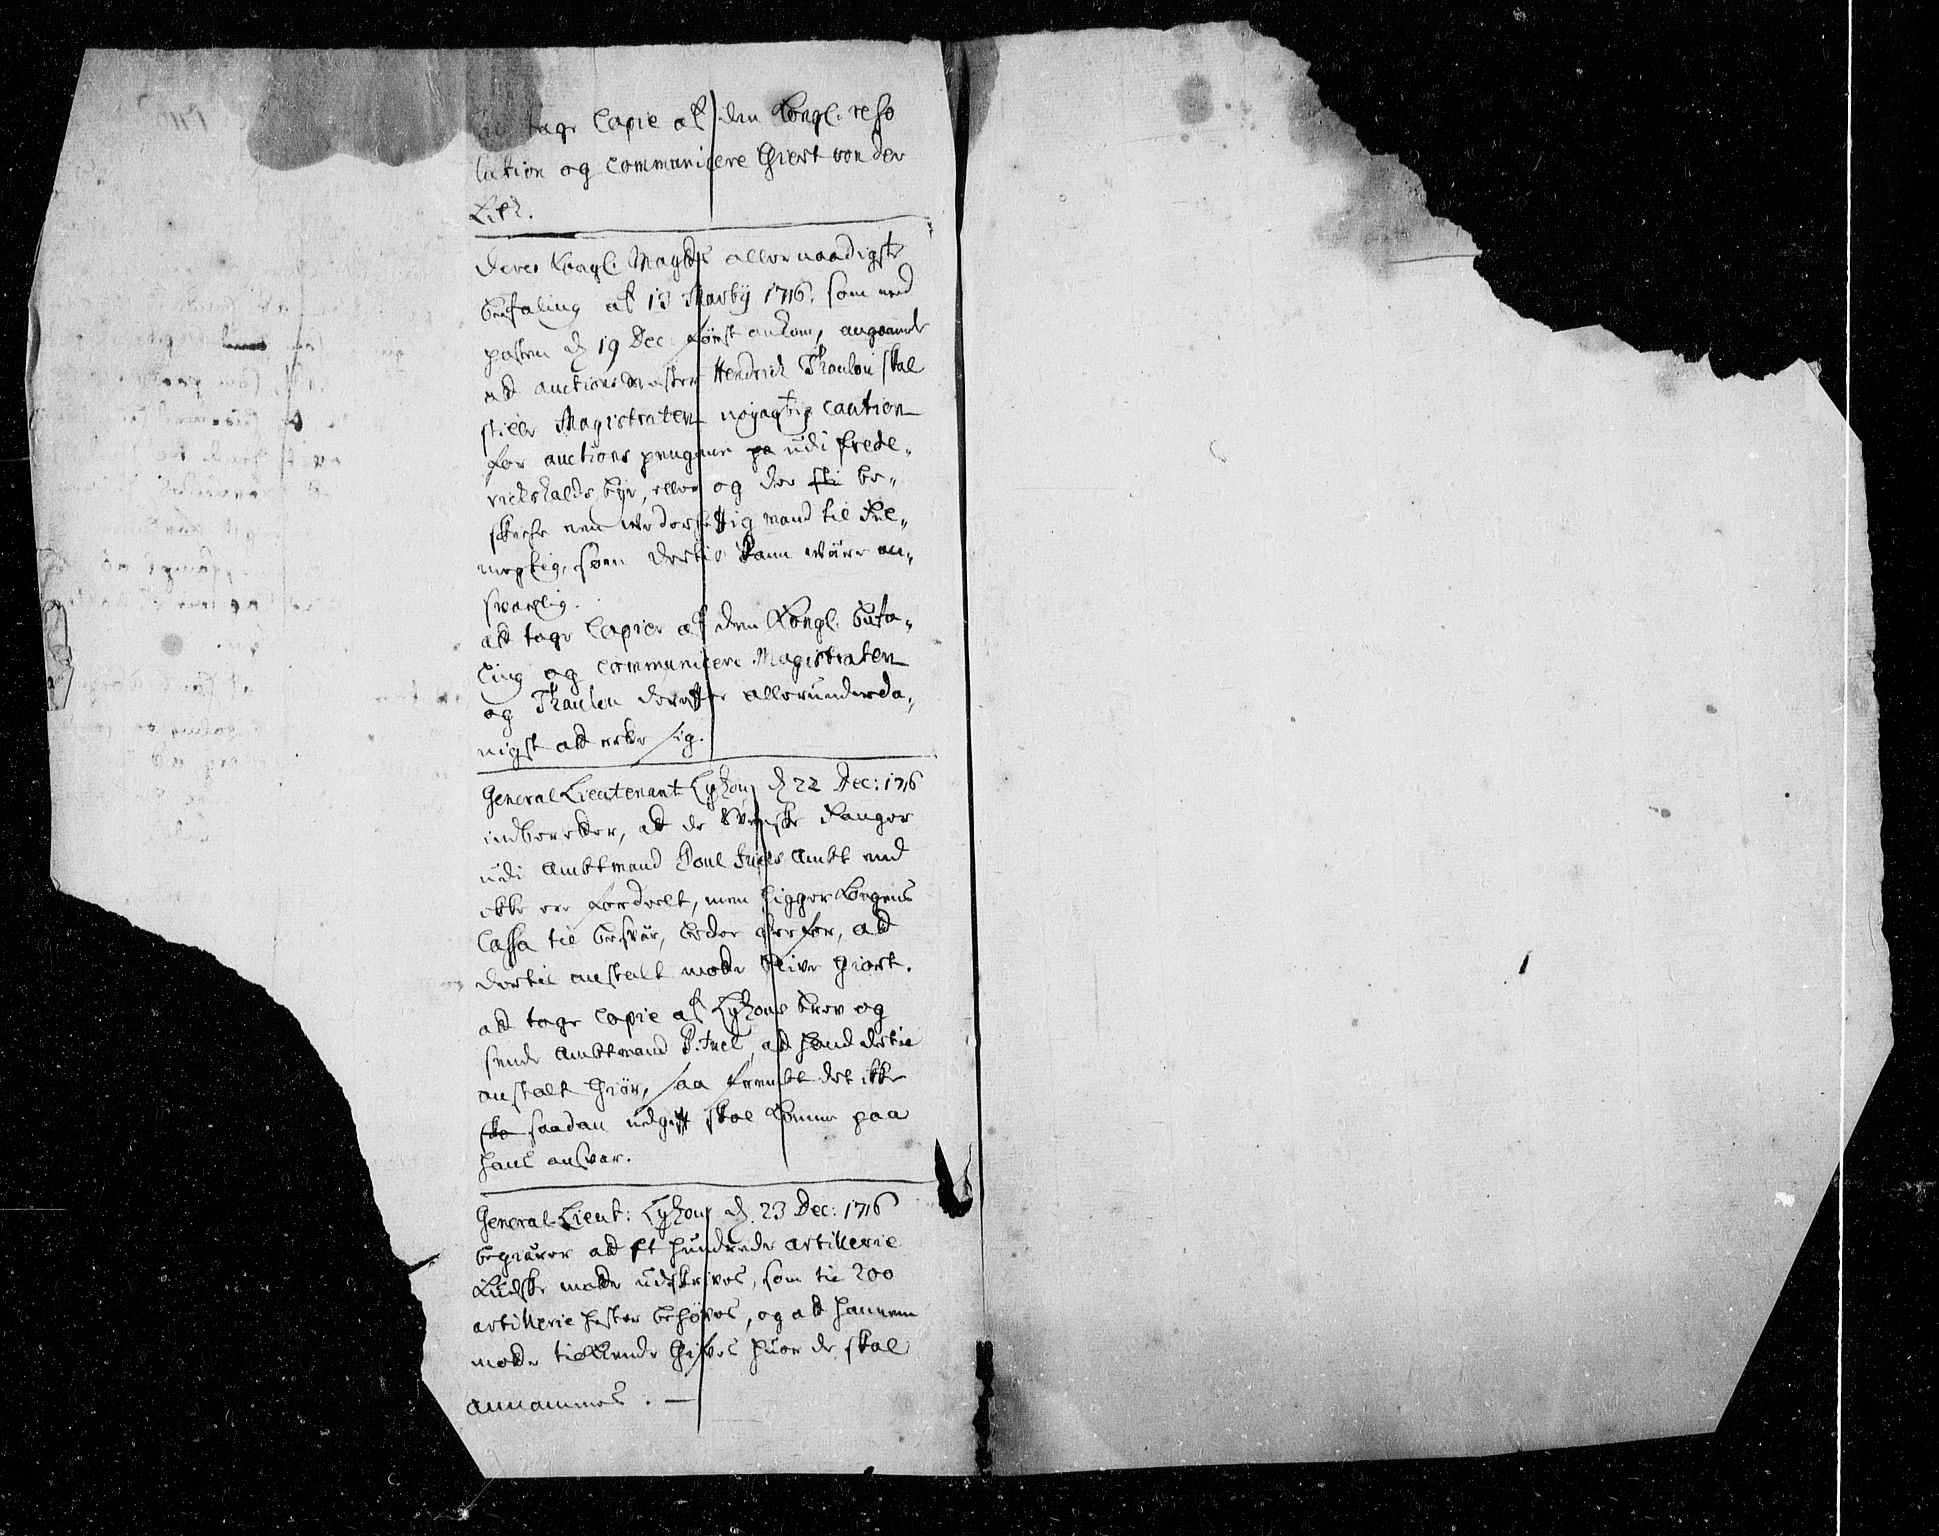 tage Copie af den Kongl. reso
lution og communicere Giert von der
Lith.
Deres Kongl. Maytts allernaadigste
befaling af 13 Martij 1716. som med
posten d. 19 Dec: først ankom, angaaende
at auctions mester Hendrich Thaulou skal
stille Magistraten nöyagtig caution
for auctions pengene pa udi Frede„
richshalds bye, eller og der sti be„
skiche een vederhefftig mand til Ful„
megtig, som dertil kann være an„
svarlig.
att tage Copier af den Kongl. befa„
ling og communicere Magistraten
og Thaulou derefter allerunderda„
nigst att rette sig.
General Lieutenant Lyzou d. 22 Dec: 1716
indberetter, att de Svenske Fanger
udi Ambtmand Poul Juels Ambt end
ikke ere fordeelt, men ligger Kongens
Cassa til besvær, beder derfor, att
dertil anstalt motte blive giort.
att tage Copie af Lyzous brev og
sende Ambtmand P. Juel, att hand dertil
anstalt giör, saa fremt det ikke
ska saadan udgift skal komme paa
hans ansvar.
General-Lieut: Lyzou d. 23 Dec: 1716
begiærer att et hundrede artillerie
Kudske motte udskrives, som til 200
artillerie hester behöves, og att hannem
motte tilkende gifves huor de skal
annammes. —